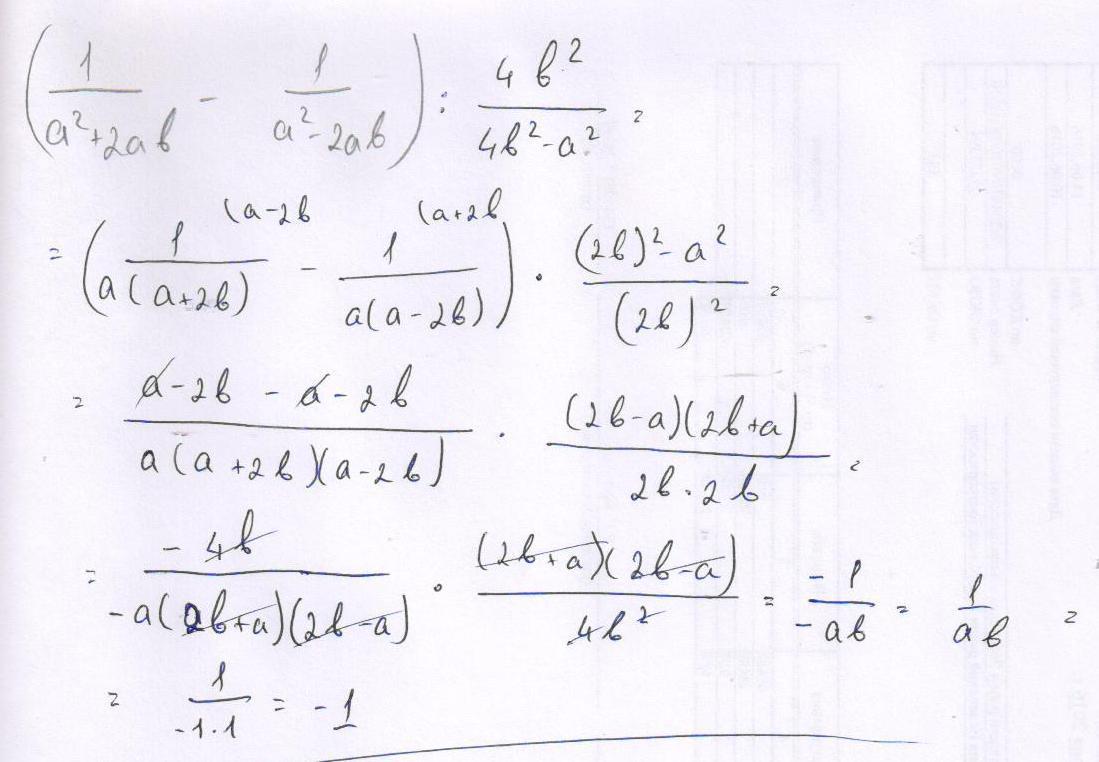 (1/(a²+2ab) - 1/(a²-2ab)) : 4b²/(4b²-a²) =
= (1/(a(a+2b)) (a-2b - 1/(a(a-2b)) (a+2b) · ((2b)²-a²)/(2b)² =
= (a-2b - a-2b)/(a(a+2b)(a-2b)) · ((2b-a)(2b+a))/(2b·2b) =
= (-4b)/(-a(2b+a)(2b-a)) · ((2b+a)(2b-a))/(4b²) = (-1)/(-ab) = 1/(ab) =
= 1/(-1·1) = -1